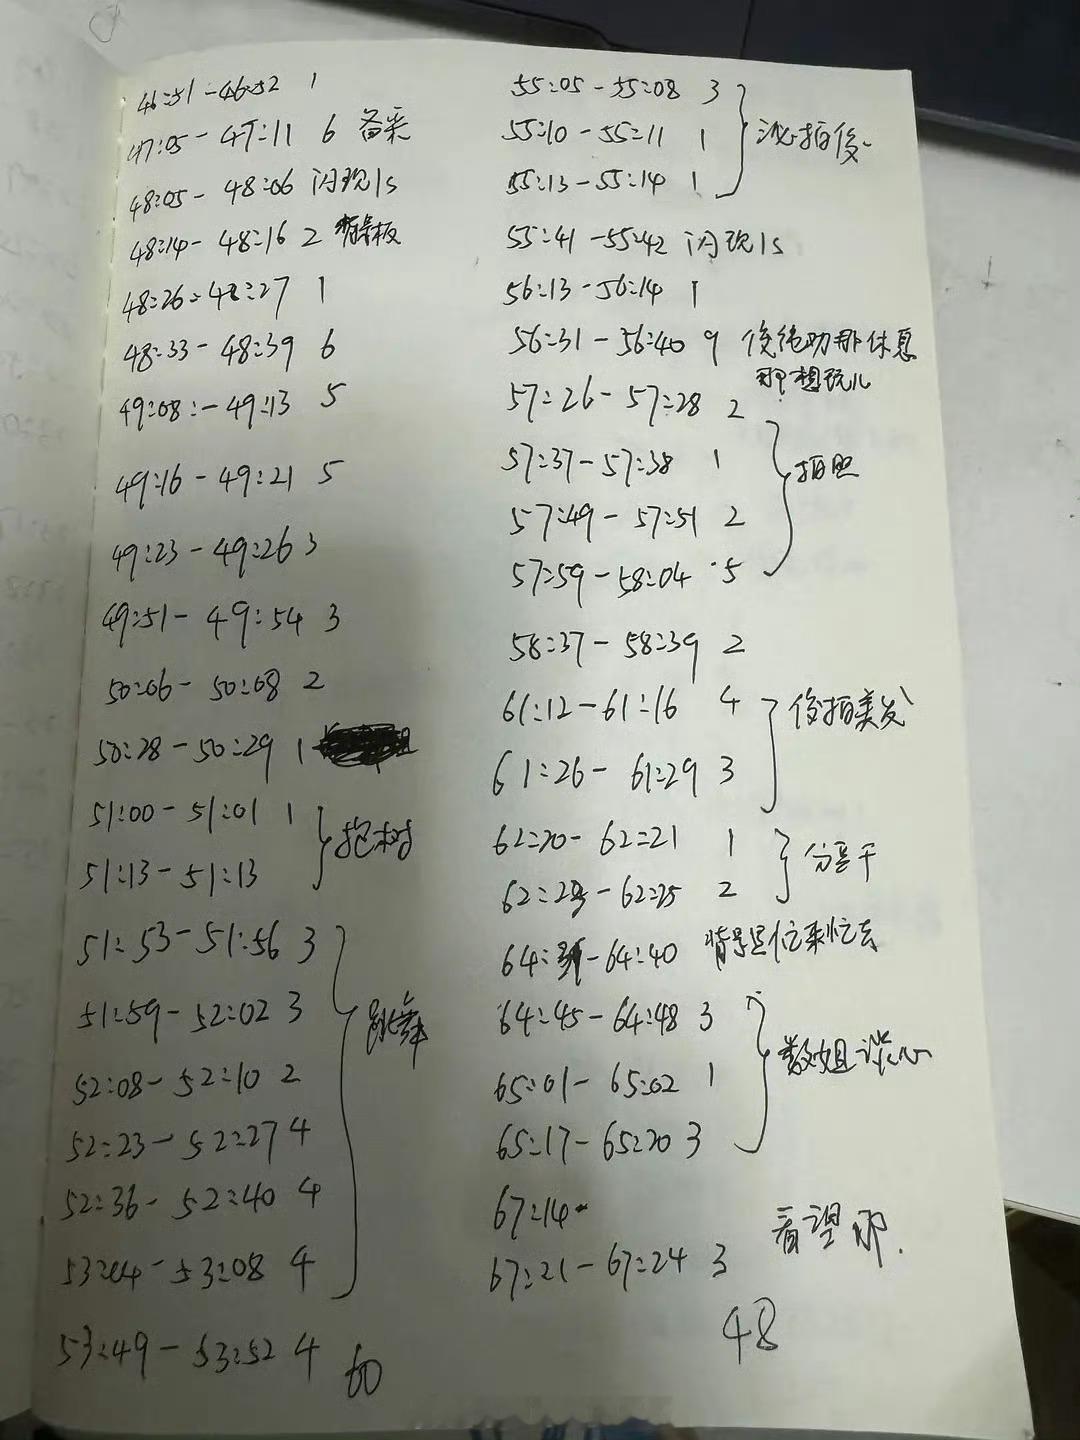 46:51-46:52 1
47:05-47:11 6 备采
48:05-48:06 闪现1s
48:14-48:16 2 背景板
48:26-48:27 1
48:33-48:39 6
49:08:-49:13 5
49:16-49:21 5
49:23-49:26 3
49:51-49:54 3
50:06-50:08 2
50:28-50:29 1
51:00-51:01 1
抱树
51:13-51:13
51:53-51:56 3
51:59-52:02 3
跳舞
52:08-52:10 2
52:23-52:27 4
52:36-52:40 4
53:04-53:08 4
53:49-53:52 4
60
55:05-55:08 3
55:10-55:11 1
拍俊
55:13-55:14 1
55:41-55:42 闪现1s
56:13-56:14 1
56:31-56:40 9 俊纯劝那休息
那想玩儿
57:26-57:28 2
57:37-57:38 1
拍照
57:49-57:51 2
57:59-58:04 5
58:37-58:39 2
61:12-61:16 4
俊拍美发
61:26-61:29 3
62:20-62:21 1
分享干
62:23-62:25 2
64:-64:40 背景里忙来忙去
64:45-64:48 3
数姐谈心
65:01-65:02 1
65:17-65:20 3
67:14-
看望那.
67:21-67:24 3
48